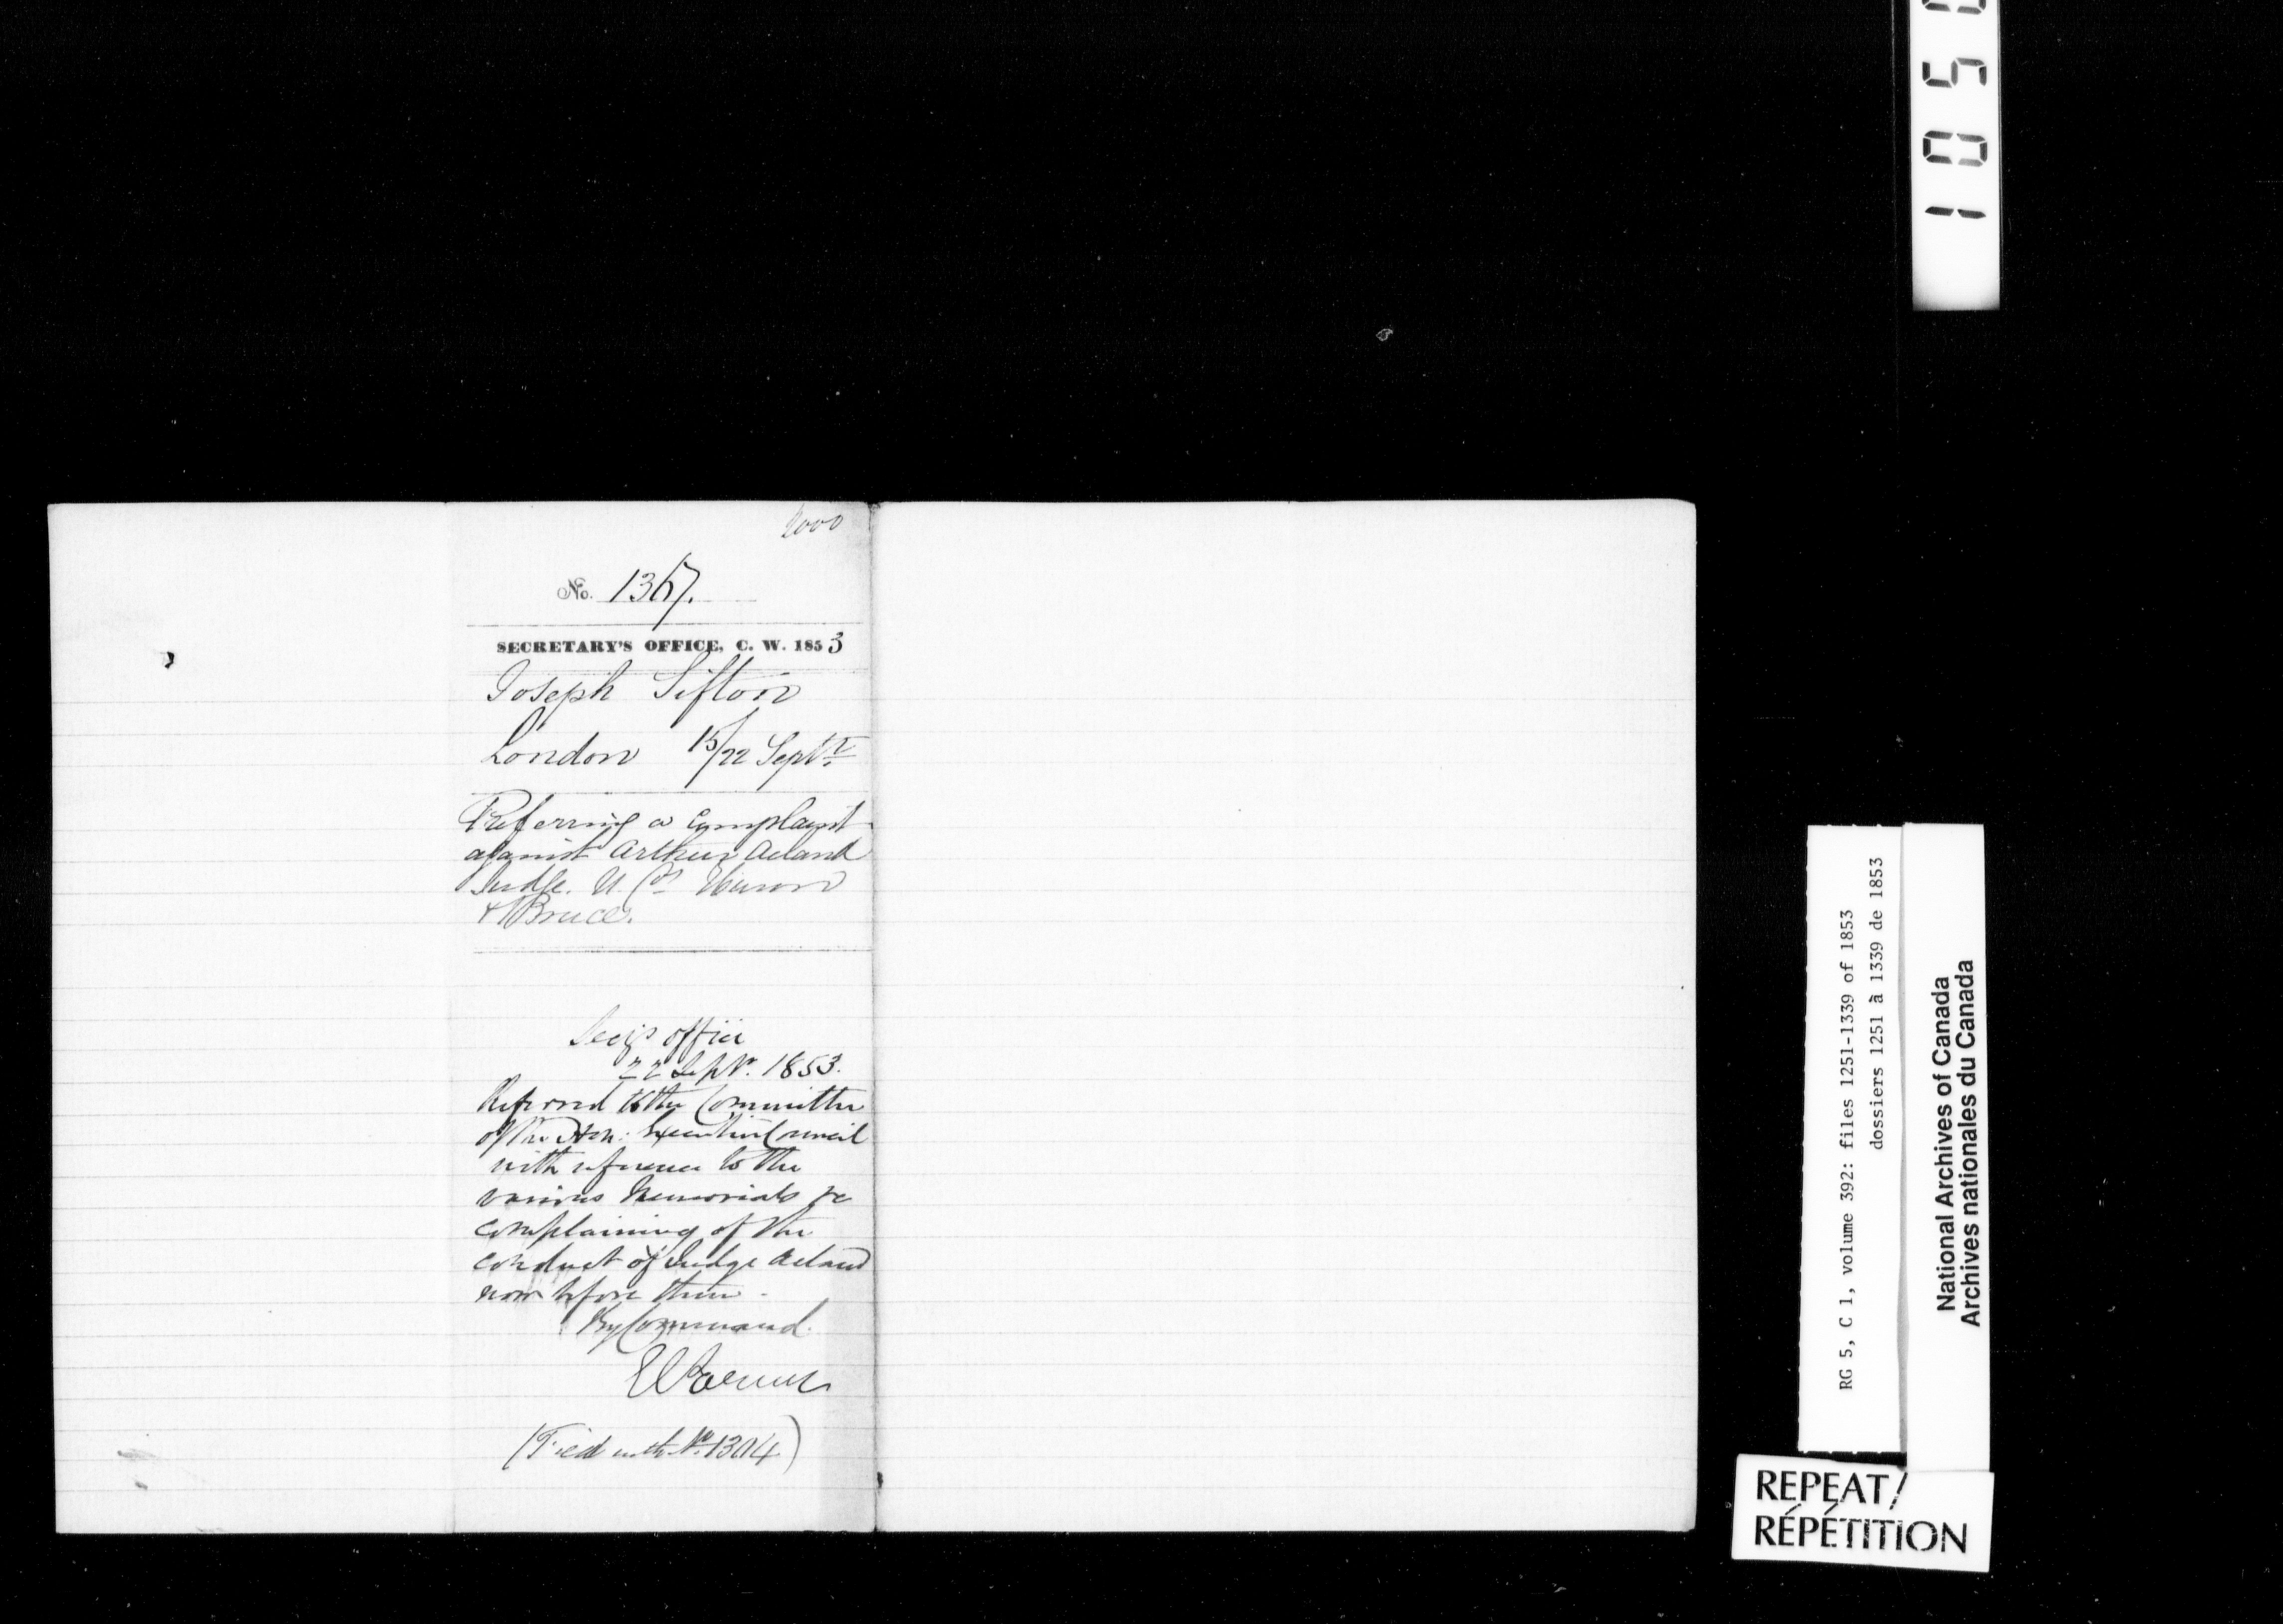 1000
No. 1367.
SECRETARY'S OFFICE, C. W. 1853
Joseph Sifton
London 15/22 Septr.
Referring a Complaint
against Arthur Acland
Judge. U. Cs Huron
& Bruce.
Secy's office
22 Septr. 1853.
Referred to the Committee
of the Hon: Executive Council
with reference to the
various Memorials &c
complaining of the
conduct of Judge Acland
now before them.
By Command.
(Filed with No. 1304)
1050
RG 5, C 1, volume 392: files 1251-1339 of 1853
dossiers 1251 à 1339 de 1853
National Archives of Canada
Archives nationales du Canada
REPEAT/
RÉPÉTITION